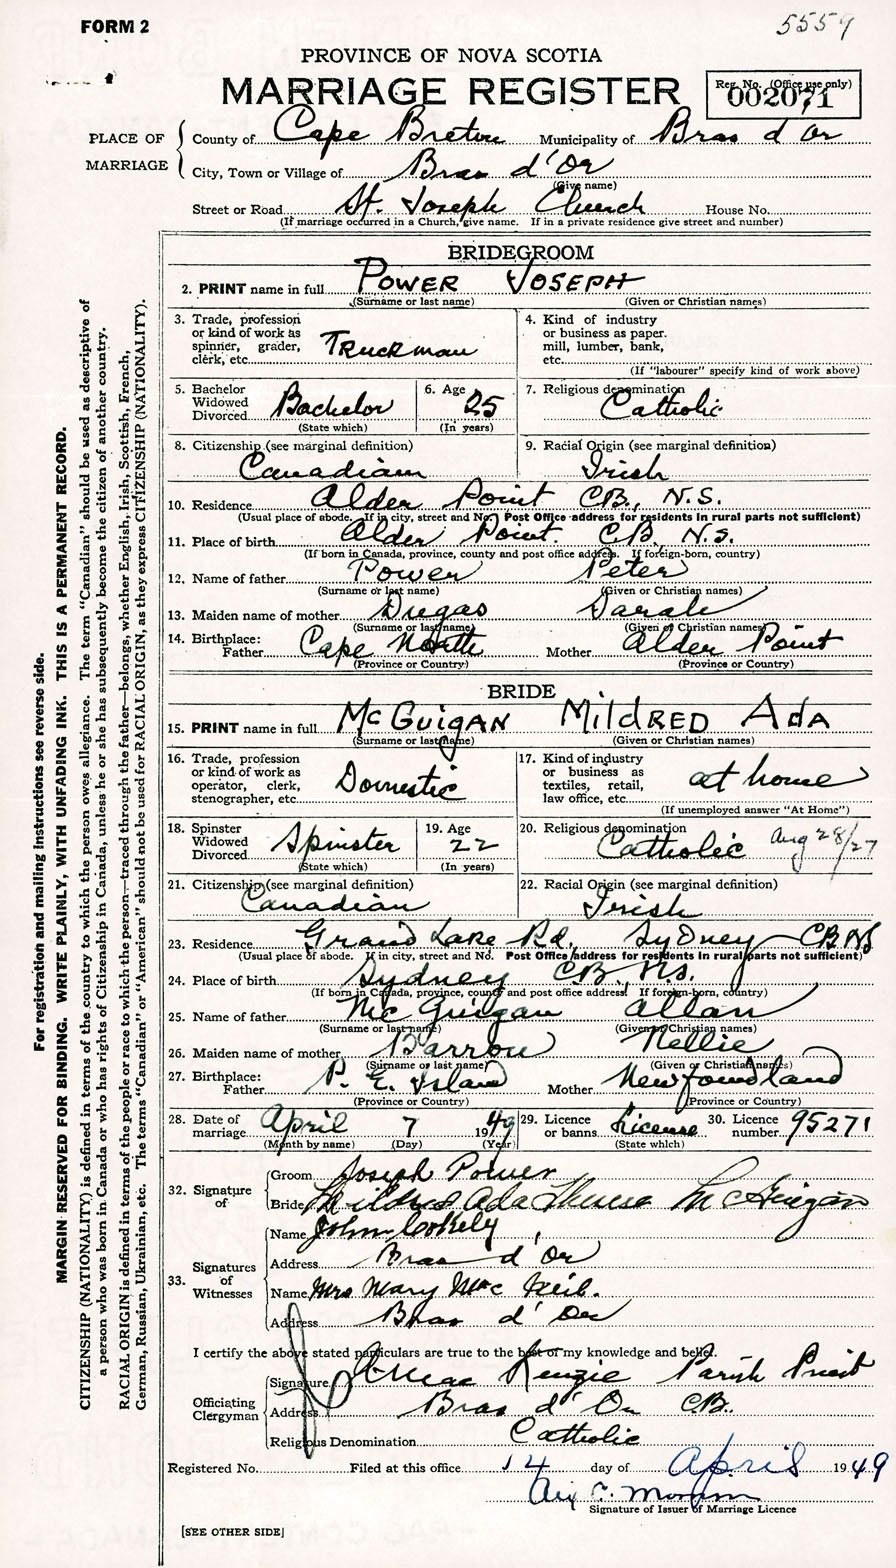 FORM 2
5559
PROVINCE OF NOVA SCOTIA
MARRIAGE REGISTER
Reg. No. (Office use only)
002071
PLACE OF MARRIAGE
County of Cape Breton Municipality of Bras d'Or
City, Town or Village of Bras d'Or
(Give name)
Street or Road St. Joseph Church House No.
(If marriage occurred in a Church, give name. If in a private residence give street and number)
BRIDEGROOM
2. PRINT name in full POWER JOSEPH
(Surname or last name) (Given or Christian names)
3. Trade, profession or kind of work as spinner, grader, clerk, etc. Truckman
4. Kind of industry or business as paper. mill, lumber, bank, etc.
(If "labourer" specify kind of work above)
5. Bachelor Widowed Divorced Bachelor
(State which)
6. Age 25
(In years)
7. Religious denomination Catholic
8. Citizenship (see marginal definition)
Canadian
9. Racial Origin (see marginal definition)
Irish
10. Residence Alder Point CB., N.S.
(Usual place of abode. If in city, street and No. Post Office address for residents in rural parts not sufficient)
11. Place of birth Alder Point. C.B., N.S.
(If born in Canada, province, county and post office address. If foreign-born, country)
12. Name of father Power Peter
(Surname or last name) (Given or Christian names)
13. Maiden name of mother Dugas Sarah
(Surname or last name) (Given or Christian names)
14. Birthplace: Father Cape North Mother Alder Point
(Province or Country) (Province or Country)
BRIDE
15. PRINT name in full McGUIGAN MILDRED ADA
(Surname or last name) (Given or Christian names)
16. Trade, profession or kind of work as operator, clerk, stenographer, etc. Domestic
17. Kind of industry or business as textiles, retail, law office, etc. at home
(If unemployed answer "At Home")
18. Spinster Widowed Divorced Spinster
(State which)
19. Age 22
(In years)
20. Religious denomination Catholic Aug 28/27
21. Citizenship (see marginal definition)
Canadian
22. Racial Origin (see marginal definition)
Irish
23. Residence Grand Lake Rd., Sydney CB NS
(Usual place of abode. If in city, street and No. Post Office address for residents in rural parts not sufficient)
24. Place of birth Sydney CB, N.S.
(If born in Canada, province, county and post office address. If foreign-born, country)
25. Name of father McGuigan Allan
(Surname or last name) (Given or Christian names)
26. Maiden name of mother Barron Nellie
(Surname or last name) (Given or Christian names)
27. Birthplace: Father P. E. Island Mother Newfoundland
(Province or Country) (Province or Country)
28. Date of marriage April 7 1949
(Month by name) (Day) (Year)
29. Licence or banns License
(State which)
30. Licence number 95271
32. Signature of
Groom Joseph Power
Bride Mildred Ada Therese McGuigan
33. Signatures of Witnesses
Name John
Address Bras d'Or
Name Mrs Mary Mac Neil.
Address Bras d'Or
I certify the above stated particulars are true to the best of my knowledge and belief.
Officiating Clergyman
Signature MacKenzie Parish Priest
Address Bras d'Or C.B.
Religious Denomination Catholic
Registered No. Filed at this office 14 day of April 1949
Signature of Issuer of Marriage Licence
[SEE OTHER SIDE]
For registration and mailing instructions see reverse side.
MARGIN RESERVED FOR BINDING. WRITE PLAINLY, WITH UNFADING INK. THIS IS A PERMANENT RECORD.
CITIZENSHIP (NATIONALITY) is defined in terms of the country to which the person owes allegiance. The term "Canadian" should be used as descriptive of
a person who was born in Canada or who has rights of Citizenship in Canada, unless he or she has subsequently become the citizen of another country.
RACIAL ORIGIN is defined in terms of the people or race to which the person—traced through the father—belongs, whether English, Irish, Scottish, French,
German, Russian, Ukrainian, etc. The terms "Canadian" or "American" should not be used for RACIAL ORIGIN, as they express CITIZENSHIP (NATIONALITY).